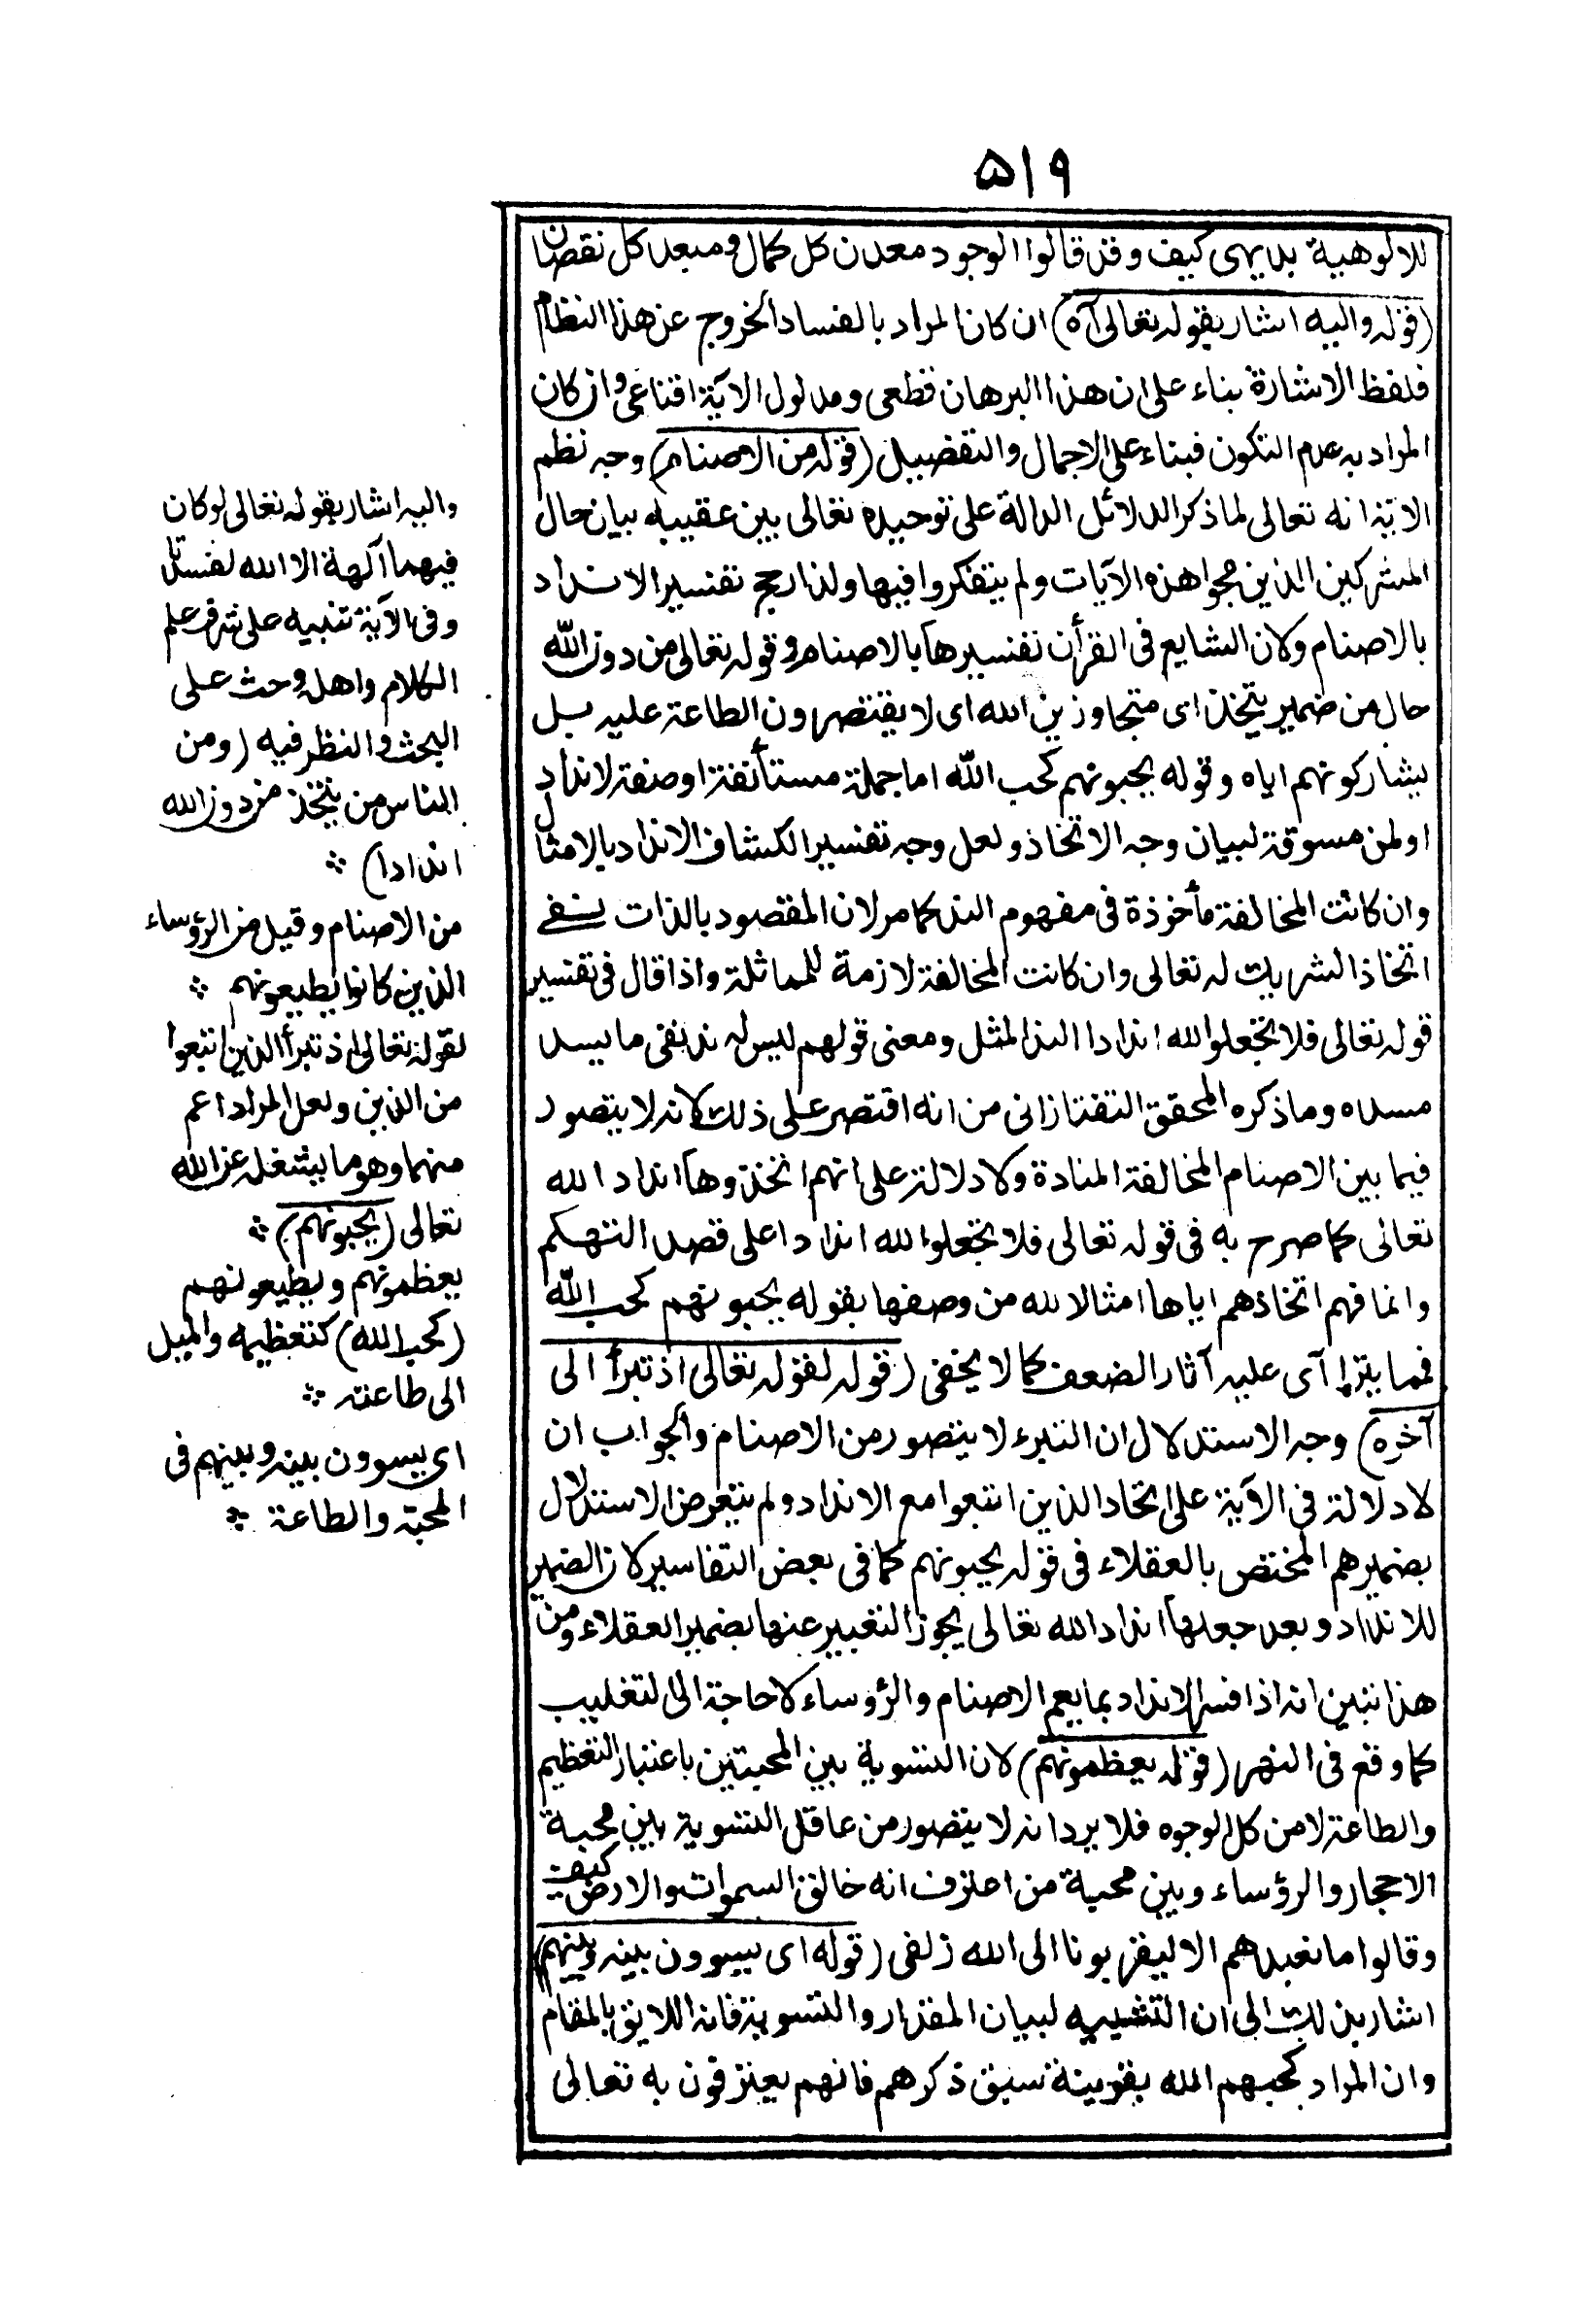 ٥١٩
للالوهية بديهى كيف وقد قالوا الوجود معدن كل كمال ومبعد كل نقصان
(قوله واليه اشار بقوله تعالى آه) ان كان المراد بالفساد الخروج عن هذا النظام
فلفظ الاشارة بناء على ان هذا البرهان قطعى ومدلول الآية اقناعى وان كان
المراد به عدم التكون فبناء على الاجمال والتفصيل (قوله من الاصنام) وجه نظم
الاية انه تعالى لما ذكر الدلائل الدالة على توحيده تعالى بين عقيبه بيان حال
المشركين الذين مجوا هذه الآيات ولم يتفكروا فيها ولذا رجح تفسير الانداد
بالاصنام ولان الشايع فى القرأن تفسيرها بالاصنام وقوله تعالى من دون الله
حال من ضمير يتخذ اى متجاوزين الله اى لا يقتصرون الطاعة عليه بل
يشاركونهم اياه وقوله يحبونهم كحب الله اما جملة مستأنفة او صفة لانداد
او لمن مسوقة لبيان وجه الاتخاذ ولعل وجه تفسير الكشاف الانداد بالامثال
وان كانت المخالفة مأخوذة فى مفهوم الند كما مر لان المقصود بالذات نفى
اتخاذ الشريك له تعالى وان كانت المخالفة لازمة للمماثلة واذا قال فى تفسير
قوله تعالى فلا تجعلوا لله اندادا الند المثل ومعنى قولهم ليس له ند نفى ما يسد
مسده وما ذكره المحقق التفتازانى من انه اقتصر على ذلك لانه لا يتصور
فيما بين الاصنام المخالفة المنادة ولا دلالة على انهم اتخذوها اندادا لله
تعالى كما صرح به فى قوله تعالى فلا تجعلوا لله اندادا على قصد التهكم
وانما فهم اتخاذهم اياها امثالا لله من وصفها بقوله يحبونهم كحب الله
فمما يتراآى عليه آثار الضعف كما لا يخفى (قوله لقوله تعالى اذ تبرأ الى
آخره) وجه الاستدلال ان التبرء لا يتصور من الاصنام والجواب ان
لا دلالة فى الآية على اتحاد الذين اتبعوا مع الانداد ولم يتعرض الاستدلال
بضميرهم المختص بالعقلاء فى قوله يحبونهم كما فى بعض التفاسير لان الضمير
للانداد وبعد جعلها انداد الله تعالى يجوز التعبير عنها بضمير العقلاء ومن
هذا تبين انه اذا فسر الانداد بما يعم الاصنام والرؤساء لا حاجة الى التغليب
كما وقع فى النهر (قوله يعظمونهم) لان التسوية بين المحبتين باعتبار التعظيم
والطاعة لا من كل الوجوه فلا يرد انه لا يتصور من عاقل التسوية بين محبة
الاحجار والرؤساء وبين محبة من اعترف انه خالق السموات والارض كيف
وقالوا ما نعبدهم الا ليقربونا الى الله زلفى (قوله اى يسوون بينه وبينهم)
اشار بذلك الى ان التشبيه لبيان المقدار والتسوية فانه اللايق بالمقام
وان المراد كحبهم الله بقرينة سبق ذكرهم فانهم يعترفون به تعالى
واليه اشار بقوله تعالى لو كان
فيهما آلهة الا الله لفسدتا
وفى الآية تنبيه على شرف علم
الكلام واهله وحث على
البحث والنظر فيه (ومن
الناس من يتخذ من دون الله
اندادا)
من الاصنام وقيل من الرؤساء
الذين كانوا يطيعونهم
لقوله تعالى اذ تبرأ الذين اتبعوا
من الذين ولعل المراد اعم
منهما وهو ما يشغله عن الله
تعالى (يحبونهم)
يعظمونهم ويطيعونهم
(كحب الله) كتعظيمه والميل
الى طاعته
اى يسوون بينه وبينهم فى
المحبة والطاعة